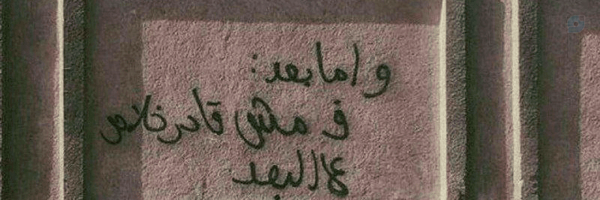 و اما بعد:
ف مش قادر خلاص
عالبعد